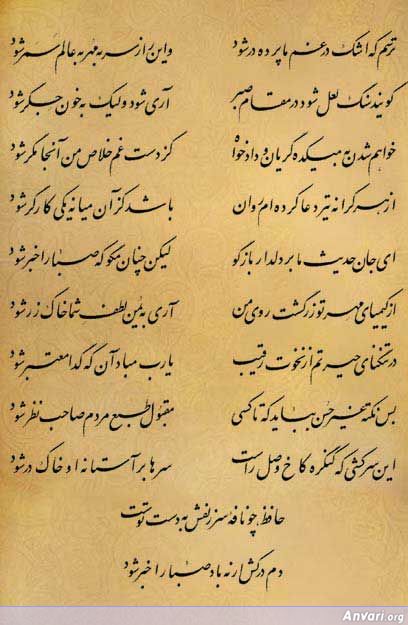 ترسم که اشک در غم ما پرده در شود واین راز سر به مهر به عالم سمر شود
گویند سنگ لعل شود در مقام صبر آری شود ولیک به خون جگر شود
خواهم شدن به میکده گریان و دادخواه کز دست غم خلاص من آنجا مگر شود
از هر کرانه تیر دعا کرده ام روان باشد کز آن میانه یکی کارگر شود
ای جان حدیث ما بر دلدار بازگو لیکن چنان مگو که صبا را خبر شود
از کیمیای مهر تو زر گشت روی من آری به یمن لطف شما خاک زر شود
در تنگنای حیرتم از نخوت رقیب یارب مباد آن که گدا معتبر شود
بس نکته غیر حسن بباید که تا کسی مقبول طبع مردم صاحب نظر شود
این سرکشی که کنگره کاخ وصل راست سرها بر آستانه او خاک در شود
حافظ چو نافه سر زلفش به دست توست
دم درکش ار نه باد صبا را خبر شود
Anvari.org